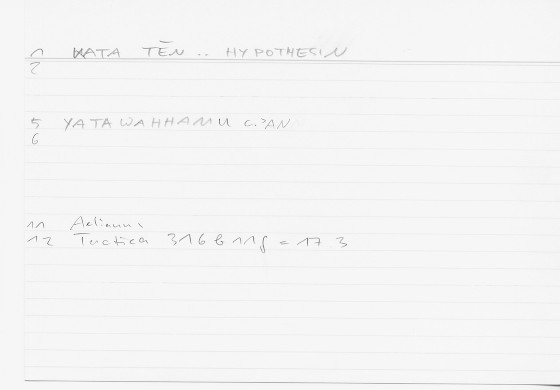 1 KATA TĒN .. HYPOTHESIN
2
5 YATAWAHHAMU C. ʾAN
6
11 Aelianus
12 Tactica 316 b 11f = 17 3